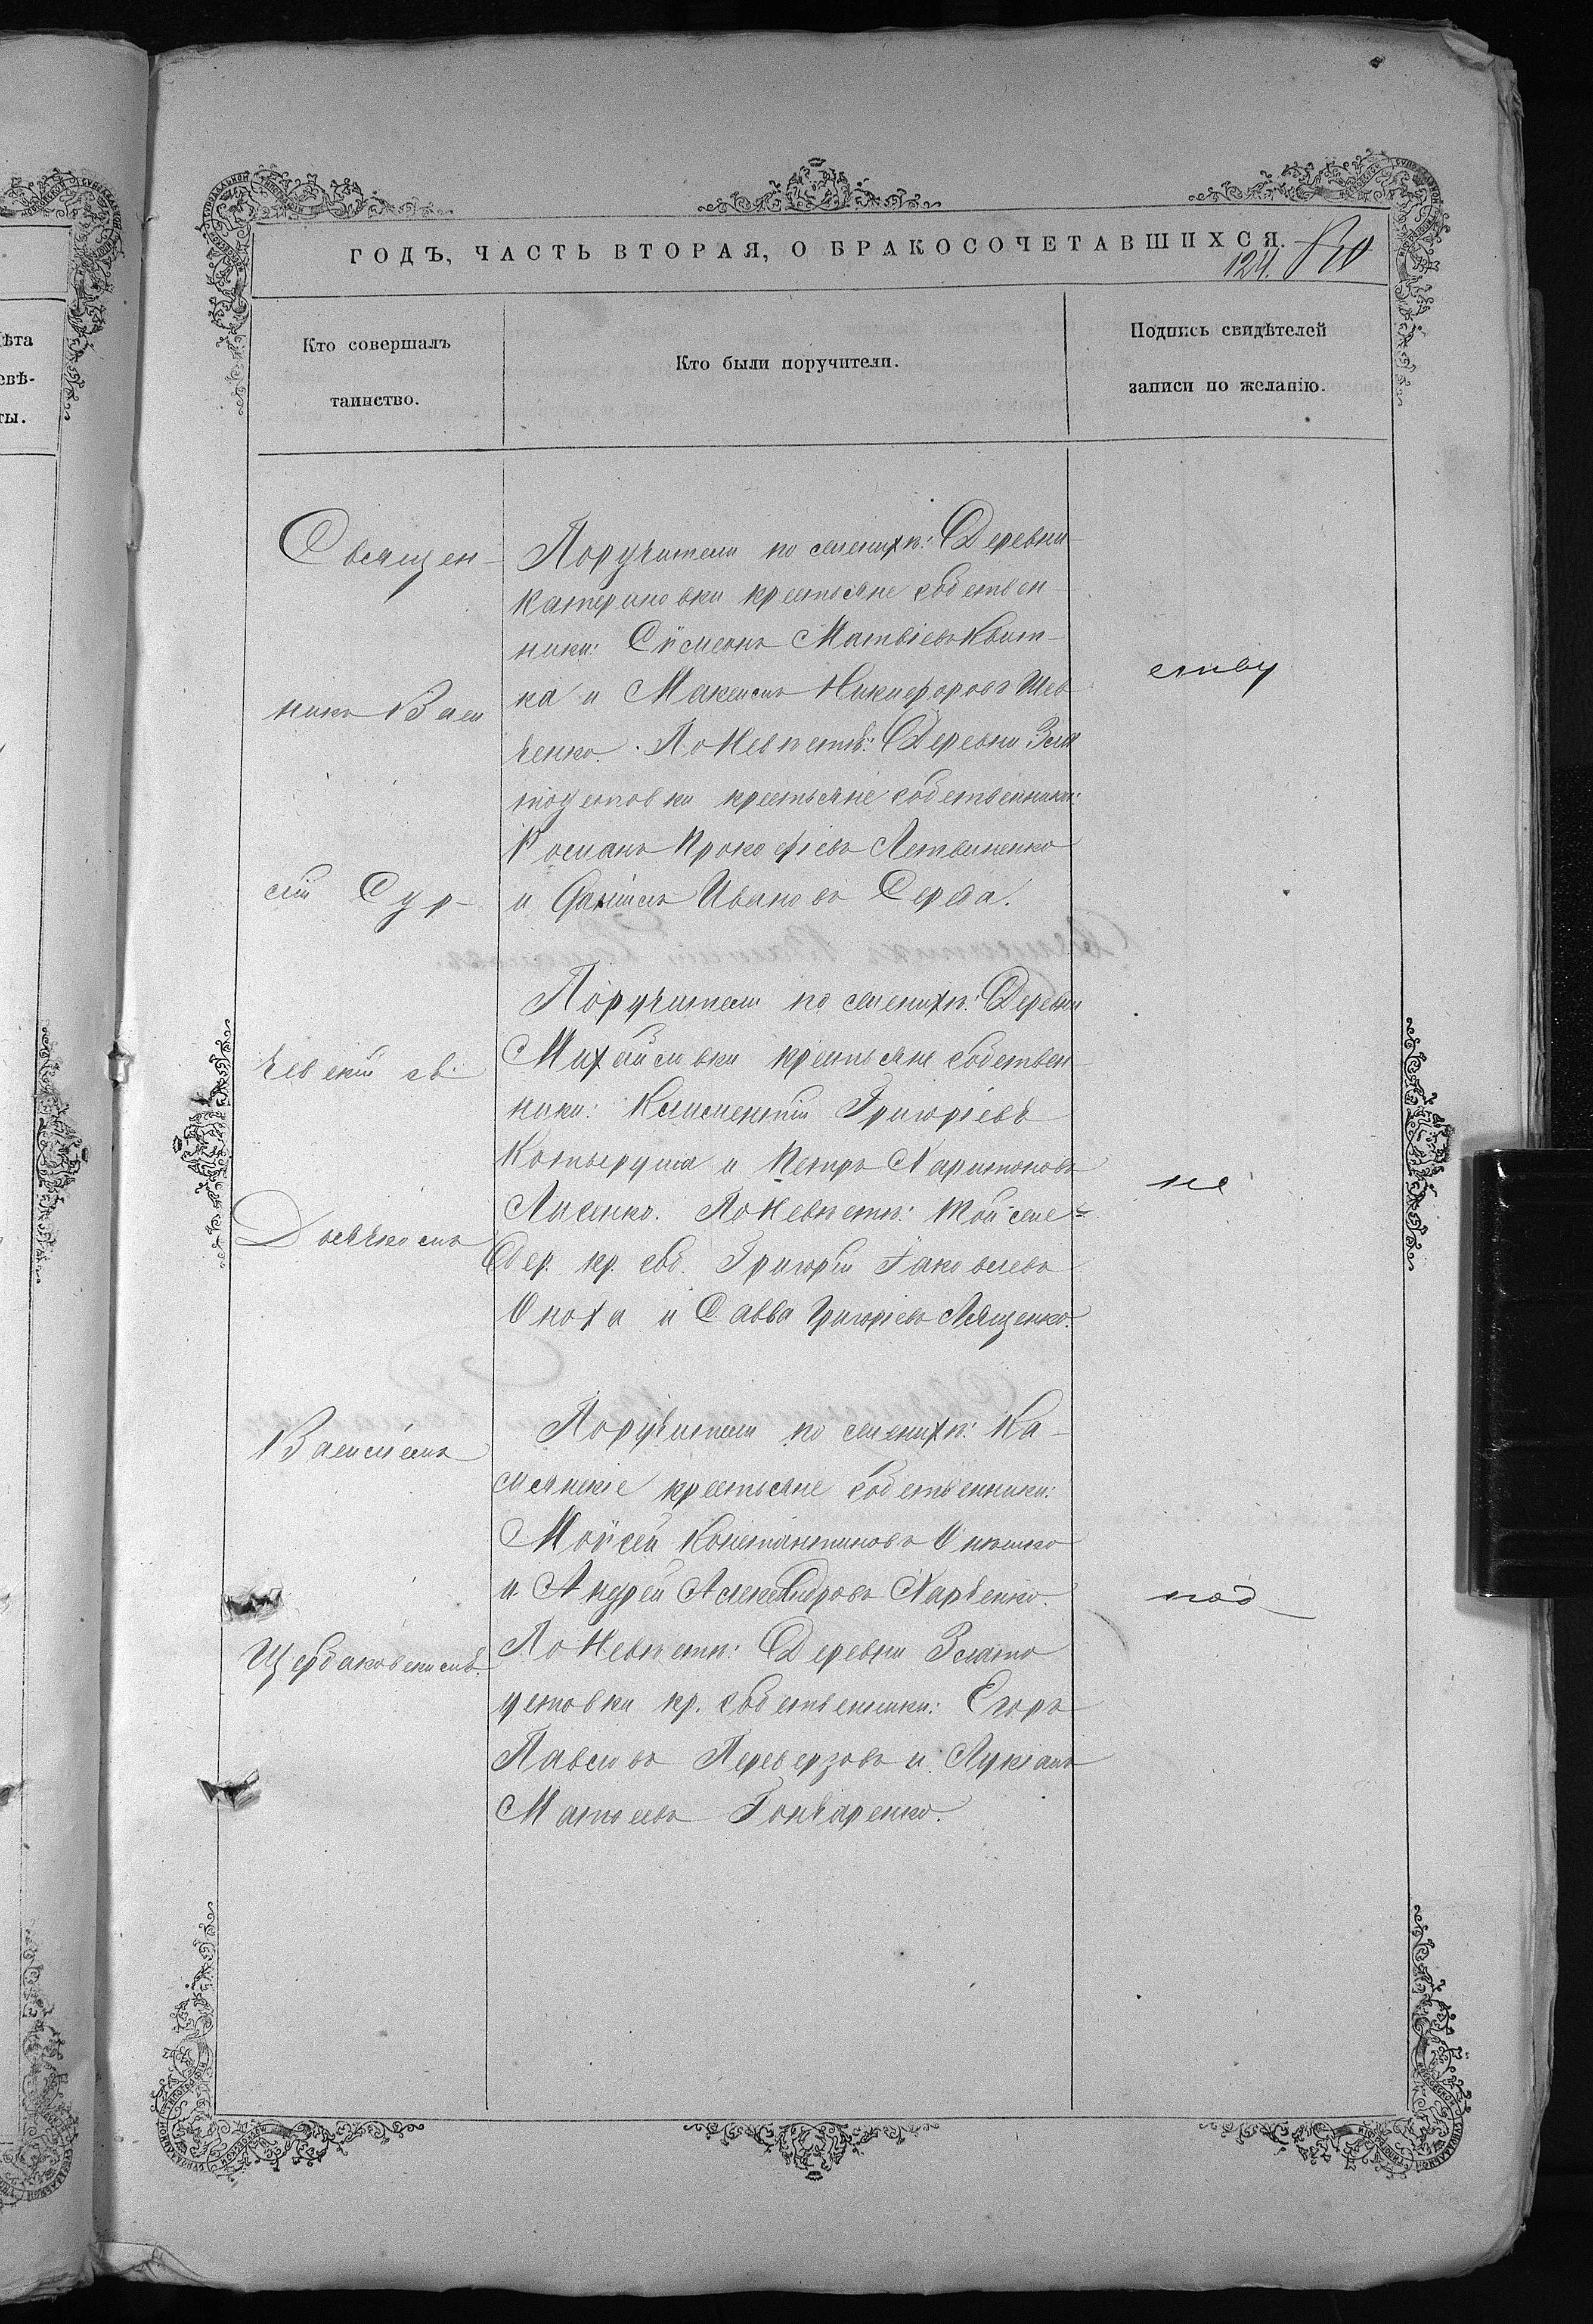 ГОДЪ, ЧАСТЬ ВТОРАЯ, О БРАКОСОЧЕТАВШИХСЯ.
124.
Кто совершалъ
таинство.
Кто были поручители.
Подпись свидѣтелей
записи по желанію.
Священ-
никъ Васи
лій Сур-
чевскій съ
Дьячкомъ
Василіемъ
Щербаковскимъ.
Поручители по женихѣ: Деревни
Катериновки крестьяне собствен-
ники: Сѵмеонъ Матвіевъ Квит-
ка и Максимъ Никифоровъ Шев
ченко. По Невѣстѣ: Деревни Зла
тоустовки крестьяне собственники:
Романъ Прокофіевъ Летвиненко
и Ивановъ Серда.
Поручители по женихѣ: Деревни
Михайловки крестьяне собствен-
ники: Климентій Григоріевъ
и Петръ Харитоновъ
Лисенко. По Невѣстѣ: Той же=
Дер. кр. соб. Григорій Іаковлевъ
и Савва Григоріевъ Лященко.
Поручители по женихѣ: Ка-
мянскіе крестьяне собственники:
Мойсей Константиновъ Онышко
и Андрей Александровъ Харченко.
По Невѣстѣ: Деревни Злато
устовки кр. собственники: Егоръ
Павловъ Переверзовъ и Лукіанъ
Матѳеевъ Гончаренко.
ству
не
под
ѣта
евѣ-
ты.